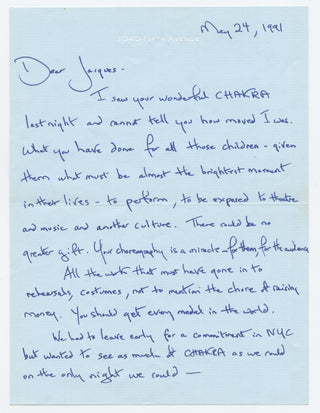 May 24, 1991
1040 FIFTH AVENUE
Dear Jacques -
I saw your wonderful CHAKRA
last night and cannot tell you how moved I was.
What you have done for all those children - given
them what must be almost the brightest moment
in their lives - to perform, to be exposed to theatre
and music and another culture. There could be no
greater gift. Your choreography is a miracle - for them, for the audience
All the work that must have gone in to
rehearsals, costumes, not to mention the chore of raising
money. You should get every medal in the world.
We had to leave early for a commitment in NYC
but wanted to see as much of CHAKRA as we could
on the only night we could —